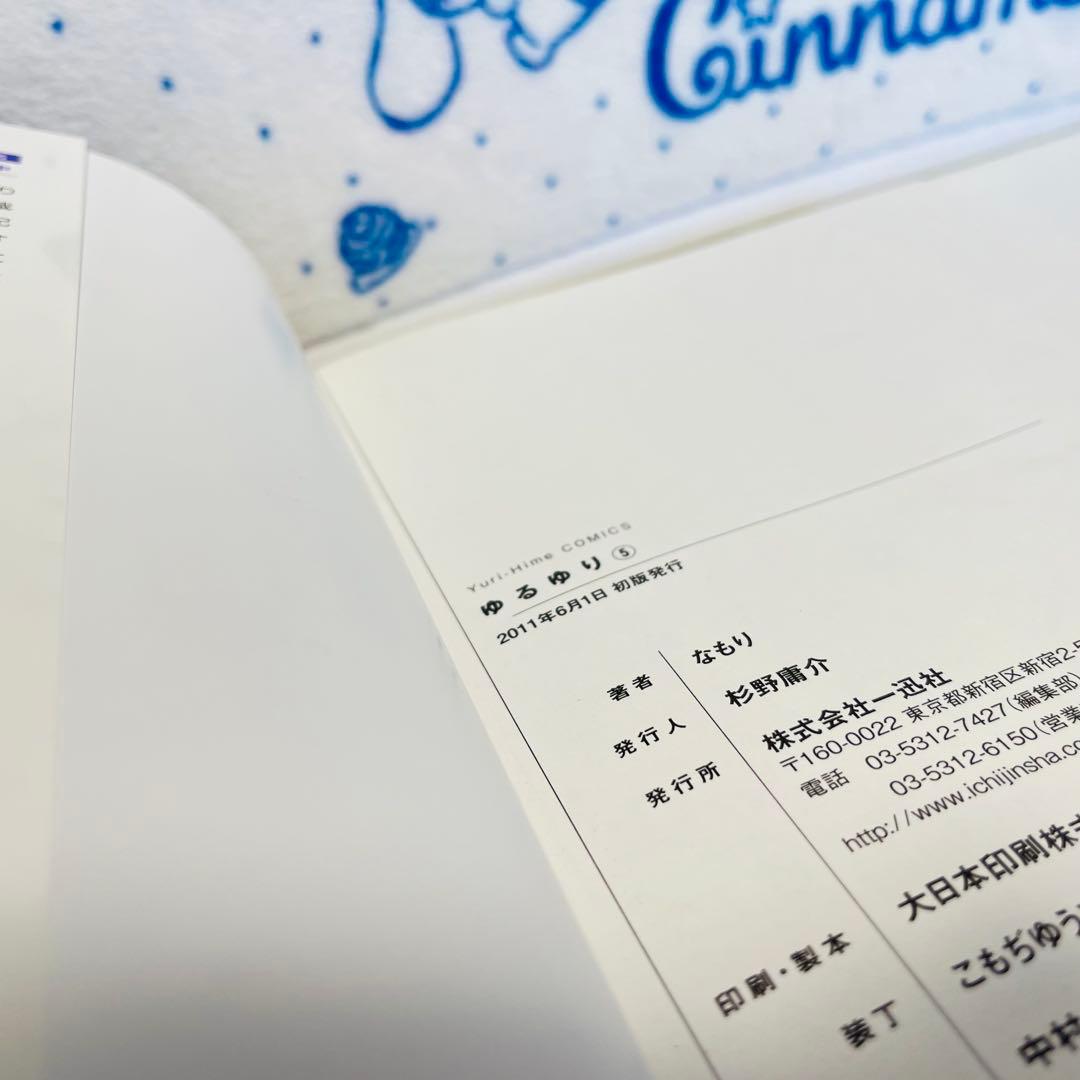 Cinnamo
Yuri-Hime COMICS
ゆるゆり⑤
2011年6月1日 初版発行
著者 なもり
発行人 杉野庸介
発行所 株式会社一迅社
〒160-0022 東京都新宿区新宿2-5
電話 03-5312-7427(編集部)
03-5312-6150(営業
http://www.ichijinsha.co
印刷・製本 大日本印刷株式
装丁 こもぢゆう
中村